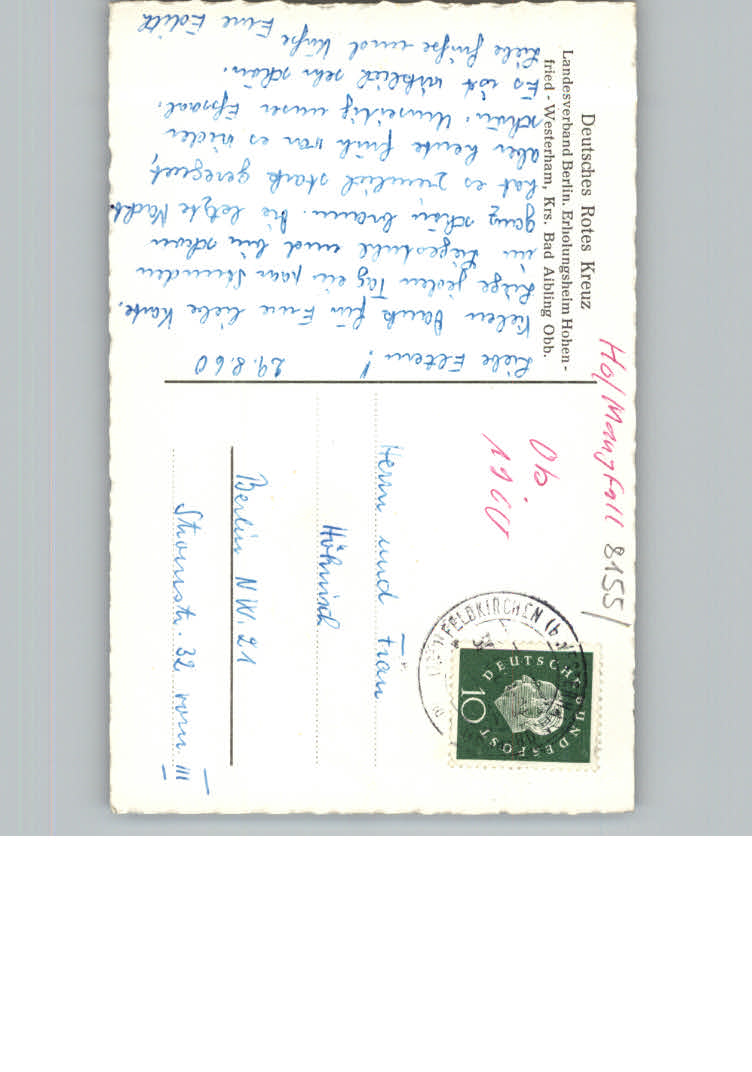 Deutsches Rotes Kreuz
Landesverband Berlin, Erholungsheim Hohen-
fried - Westerham, Krs. Bad Aibling Obb.
Liebe Eltern! 29.8.60
Vielen Dank für Eure liebe Karte.
Liege jeden Tag ein paar Stunden
im Liegestuhl und bin schon
ganz schön braun. Die letzte Nacht
hat es ziemlich stark geregnet,
aber heute früh war es wieder
schön. Umseitig unser Eßsaal.
Es ist wirklich sehr schön.
Liebe Grüße und Küsse
Eure Edith
Ho/Mangfall 8155/
Ob
1960
FELDKIRCHEN (b.
DEUTSCHE BUNDESPOST
10
Herrn und Frau
Höhnisch
Berlin NW. 21
Stromstr. 32 vorn III